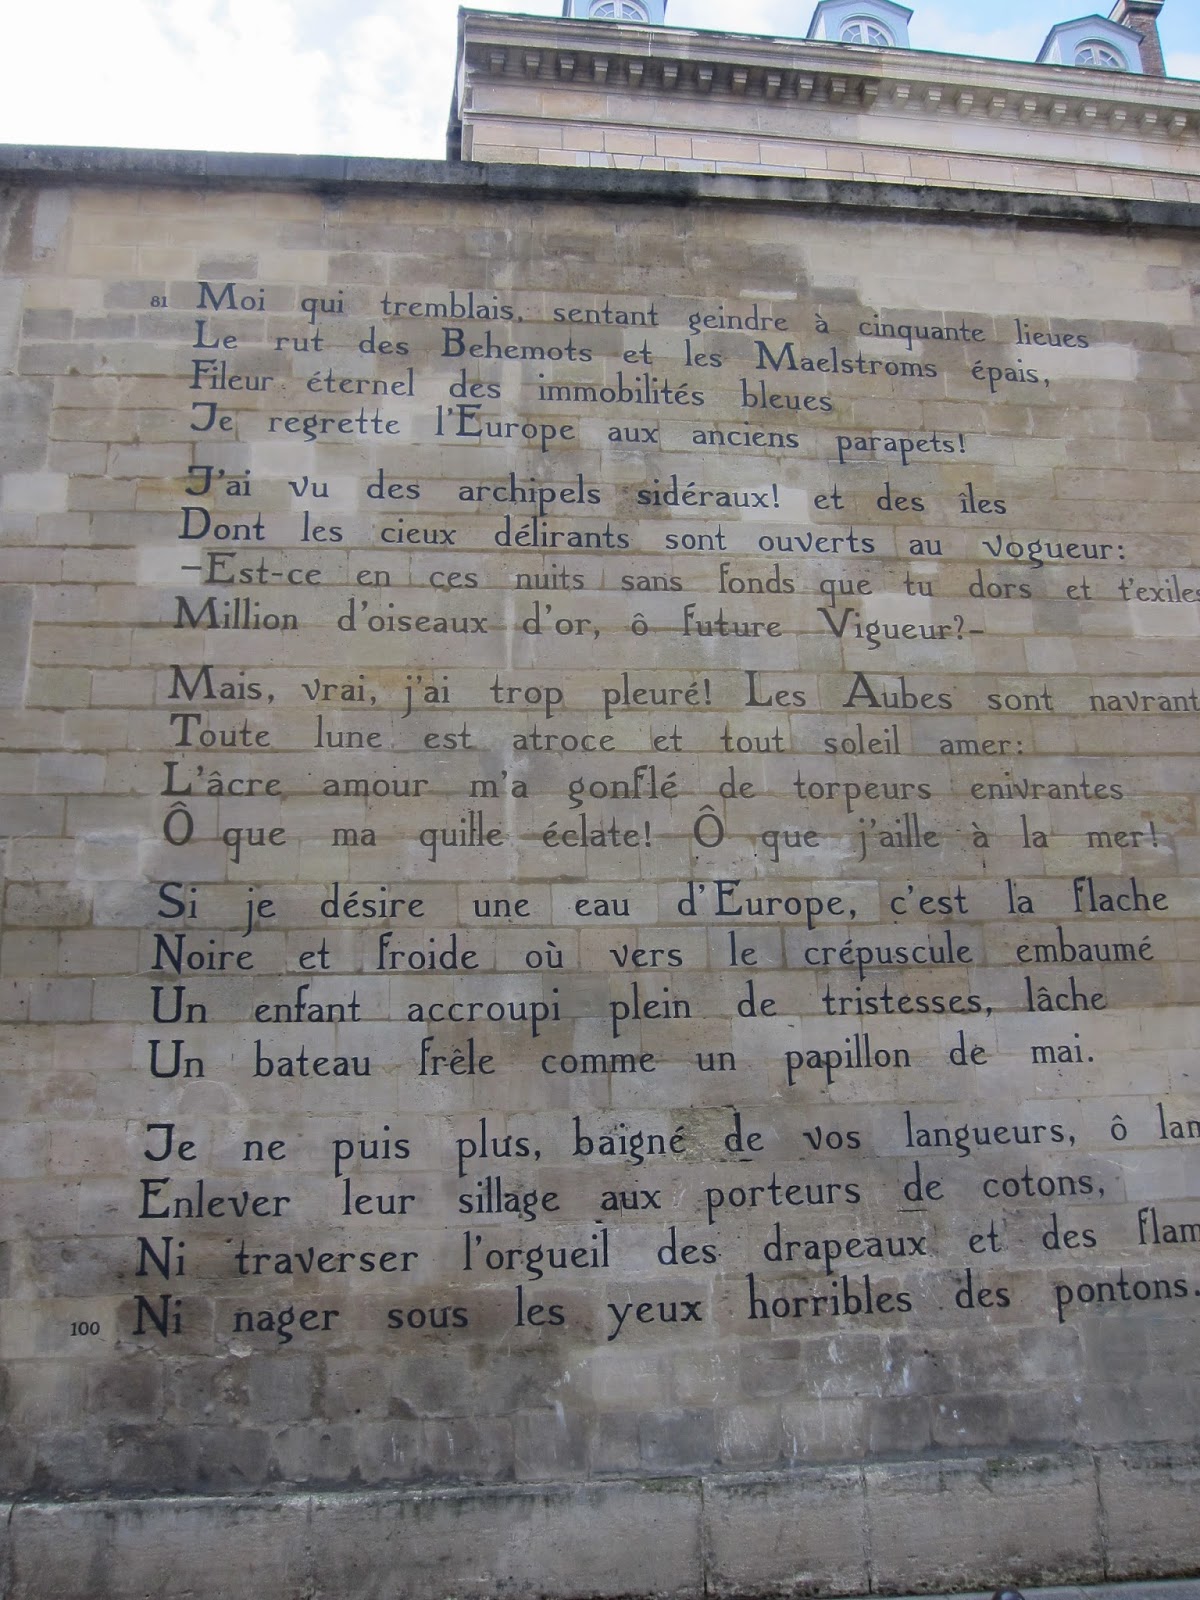 81 Moi qui tremblais, sentant geindre à cinquante lieues
Le rut des Behemots et les Maelstroms épais,
Fileur éternel des immobilités bleues
Je regrette l'Europe aux anciens parapets!
J'ai vu des archipels sidéraux! et des îles
Dont les cieux délirants sont ouverts au vogueur:
-Est-ce en ces nuits sans fonds que tu dors et t'exiles
Million d'oiseaux d'or, ô future Vigueur?-
Mais, vrai, j'ai trop pleuré! Les Aubes sont navrant
Toute lune est atroce et tout soleil amer:
L'âcre amour m'a gonflé de torpeurs enivrantes
Ô que ma quille éclate! Ô que j'aille à la mer!
Si je désire une eau d'Europe, c'est la flache
Noire et froide où vers le crépuscule embaumé
Un enfant accroupi plein de tristesses, lâche
Un bateau frêle comme un papillon de mai.
Je ne puis plus, baigné de vos langueurs, ô lam
Enlever leur sillage aux porteurs de cotons,
Ni traverser l'orgueil des drapeaux et des flam
100 Ni nager sous les yeux horribles des pontons.